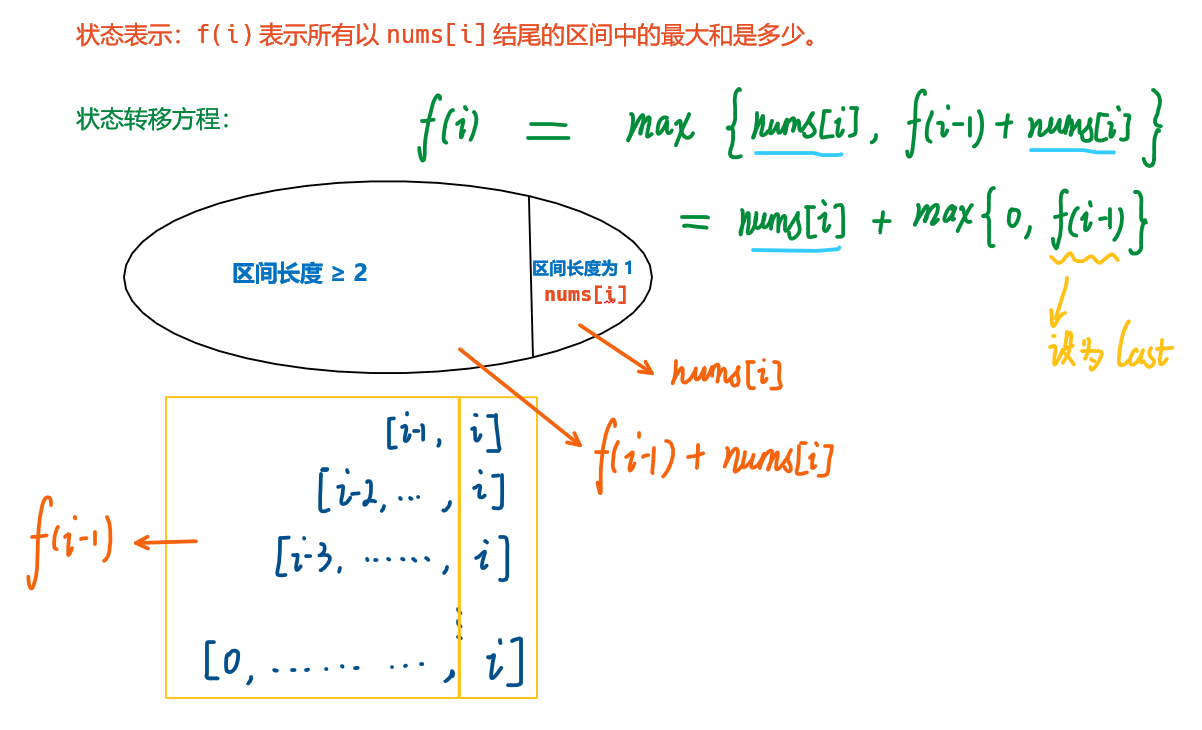 状态表示：f(i)表示所有以 nums[i]结尾的区间中的最大和是多少。
状态转移方程：
f(i) = max {nums[i], f(i-1) + nums[i]}
= nums[i] + max{0, f(i-1)}
设为 last
区间长度 ≥ 2
区间长度为 1
nums[i]
nums[i]
f(i-1) + nums[i]
[i-1, i]
[i-2, ... , i]
[i-3, ......, i]
⋮
[0, ...... ... , i]
f(i-1)